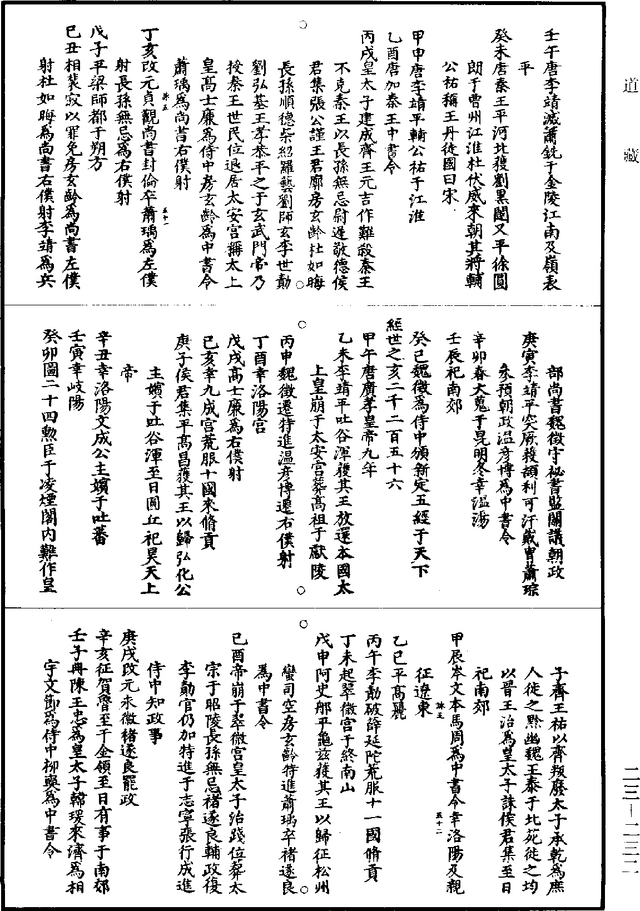 道藏
壬午唐李靖滅蕭銑于金陵江南及嶺表
平
癸未唐秦王平河北獲劉黑闥又平徐圓
朗于曹州江淮杜伏威來朝其將輔
公祐稱王丹徒國曰宋
甲申唐李靖平輔公祐于江淮
乙酉唐加秦王中書令
丙戌皇太子建成齊王元吉作難殺秦王
不克秦王以長孫無忌尉遲敬德侯
君集張公謹王君廓房玄齡杜如晦
長孫順德柴紹羅藝劉師玄李世勣
劉弘基王孝恭平之于玄武門帝乃
授秦王世民位退居太安宮稱太上
皇高士廉為侍中房玄齡為中書令
蕭瑀為尚書右僕射
丁亥改元貞觀尚書封倫卒蕭瑀為左僕
射長孫無忌為右僕射
戊子平梁師都于朔方
己丑相裴寂以罪免房玄齡為尚書左僕
射杜如晦為尚書右僕射李靖為兵
部尚書魏徵守祕書監關議朝政
庚寅李靖平突厥獲頡利可汗戴胄蕭琮
參預朝政溫彥博為中書令
辛卯春大蒐于昆明冬幸溫湯
壬辰祀南郊
癸巳魏徵為侍中頒新定五經于天下
經世之亥二千二百五十六
甲午唐廣孝皇帝九年
乙未李靖平吐谷渾獲其王放還本國太
上皇崩于太安宮葬高祖于獻陵
丙申魏徵遷特進溫彥博遷右僕射
丁酉幸洛陽宮
戊戌高士廉為右僕射
己亥幸九成宮荒服十國來脩貢
庚子侯君集平高昌獲其王以歸弘化公
主嬪于吐谷渾至日圓丘祀昊天上
帝
辛丑幸洛陽文成公主嬪于吐蕃
壬寅幸岐陽
癸卯圖二十四勳臣于凌煙閣內難作皇
子齊王祐以齊叛廢太子承乾為庶
人徙之黔幽魏王泰于北苑徙之均
以晉王治為皇太子誅侯君集至日
祀南郊
甲辰岑文本馬周為中書令幸洛陽及親
征遼東
乙巳平高麗
丙午李勣破薛延陀荒服十一國脩貢
丁未起翠微宮于終南山
戊申阿史那平龜茲獲其王以歸征松州
蠻司空房玄齡特進蕭瑀卒褚遂良
為中書令
己酉帝崩于翠微宮皇太子治踐位葬太
宗于昭陵長孫無忌褚遂良輔政復
李勣官仍加特進于志寧張行成進
侍中知政事
庚戌改元永徽褚遂良罷政
辛亥征賀魯至于金領至日有事于南郊
壬子冊陳王忠為皇太子韓瑗來濟為相
宇文節為侍中柳奭為中書令
二三—二三二